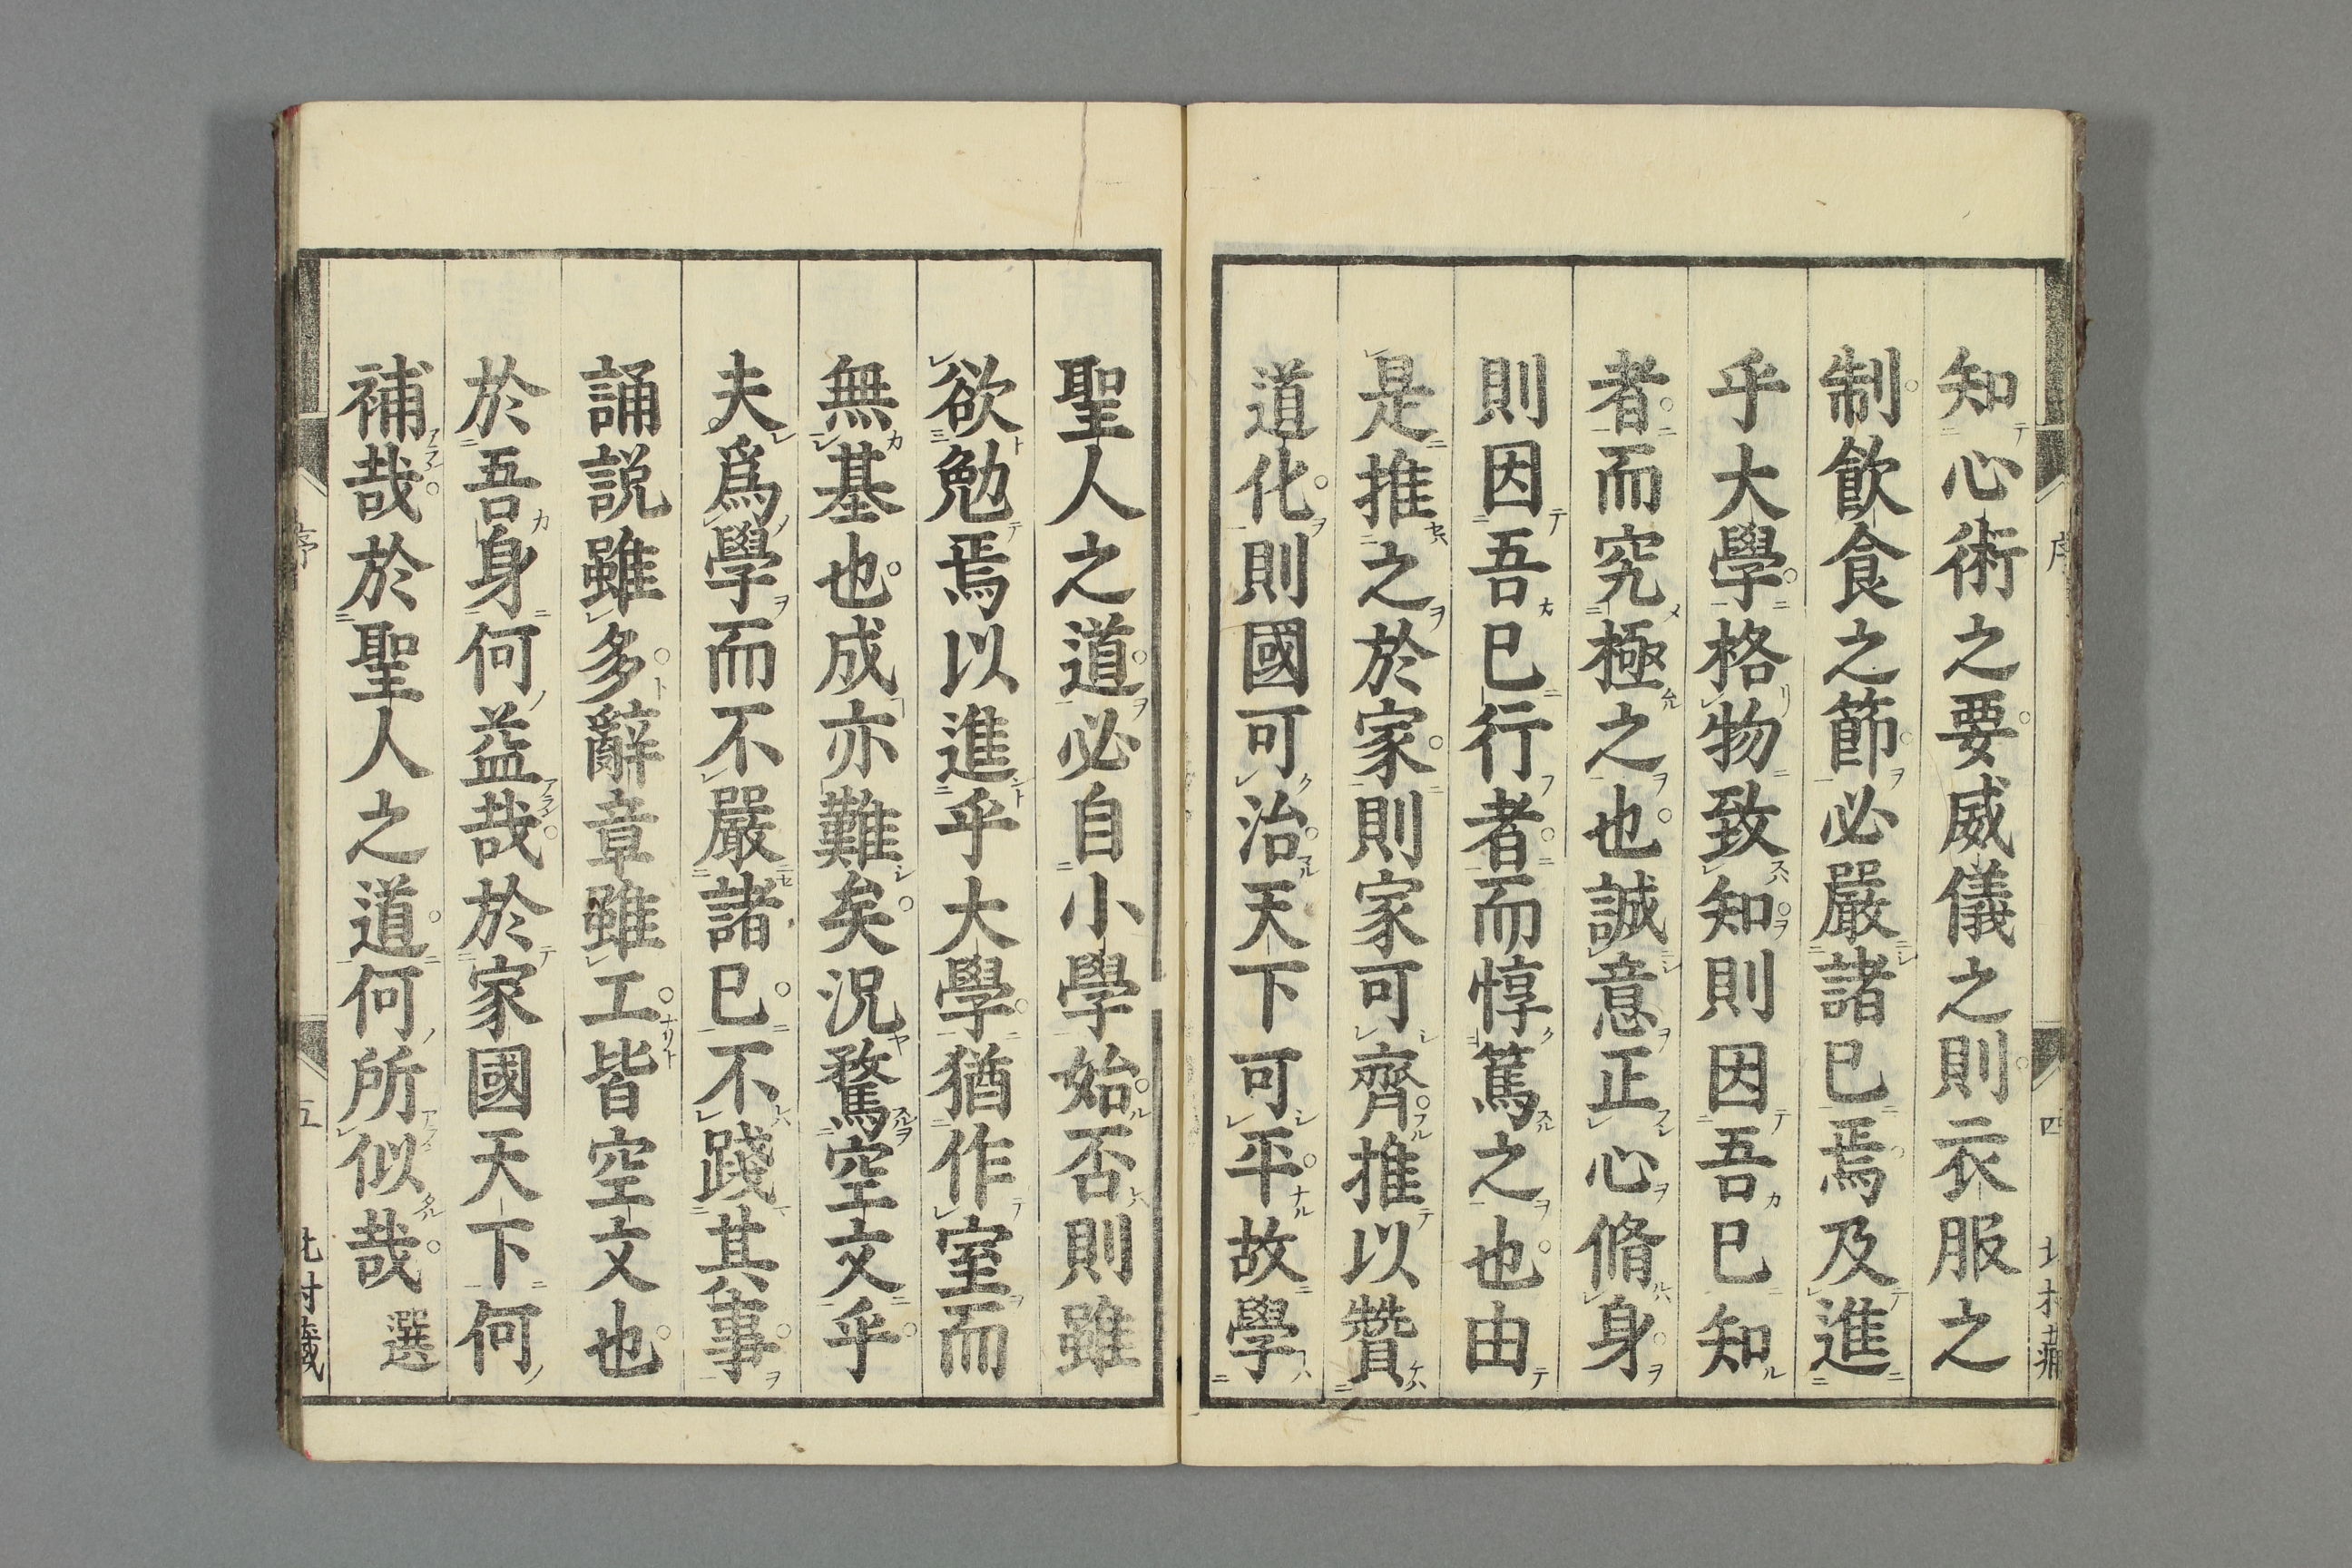 知心術之要威儀之則衣服之
制飲食之節必嚴諸已焉及進
乎大學格物致知則因吾已知
者而究極之也誠意正心脩身
則因吾已行者而惇篤之也由
是推之於家則家可齊推以贊
道化則國可治天下可平故學
聖人之道必自小學始否則雖
欲勉焉以進乎大學猶作室而
無基也成亦難矣況騖空文乎
夫爲學而不嚴諸已不踐其事
誦説雖多辭章雖工皆空文也
於吾身何益哉於家國天下何
補哉於聖人之道何所似哉 選
序
五